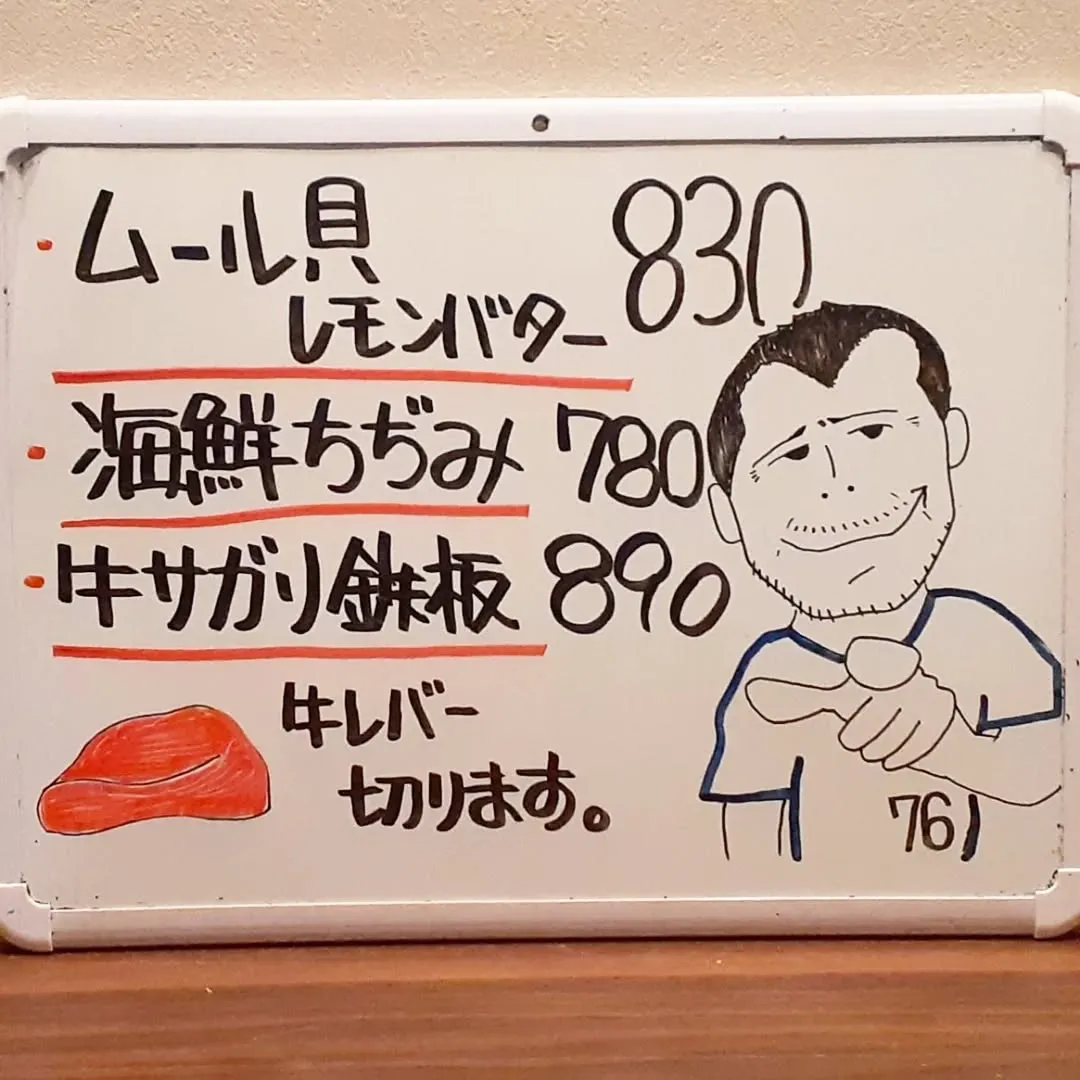 ・ムール貝 830
レモンバター
・海鮮ちぢみ 780
・牛サガリ鉄板 890
牛レバー
切ります。
761